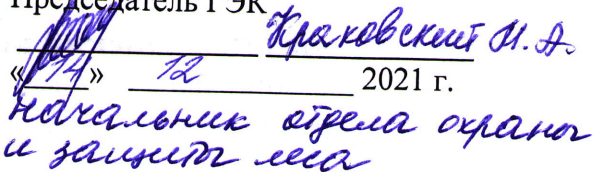 Председатель ГЭК
Краковский Н. А.
«14» 12 2021 г.
начальник отдела охраны
и защиты леса